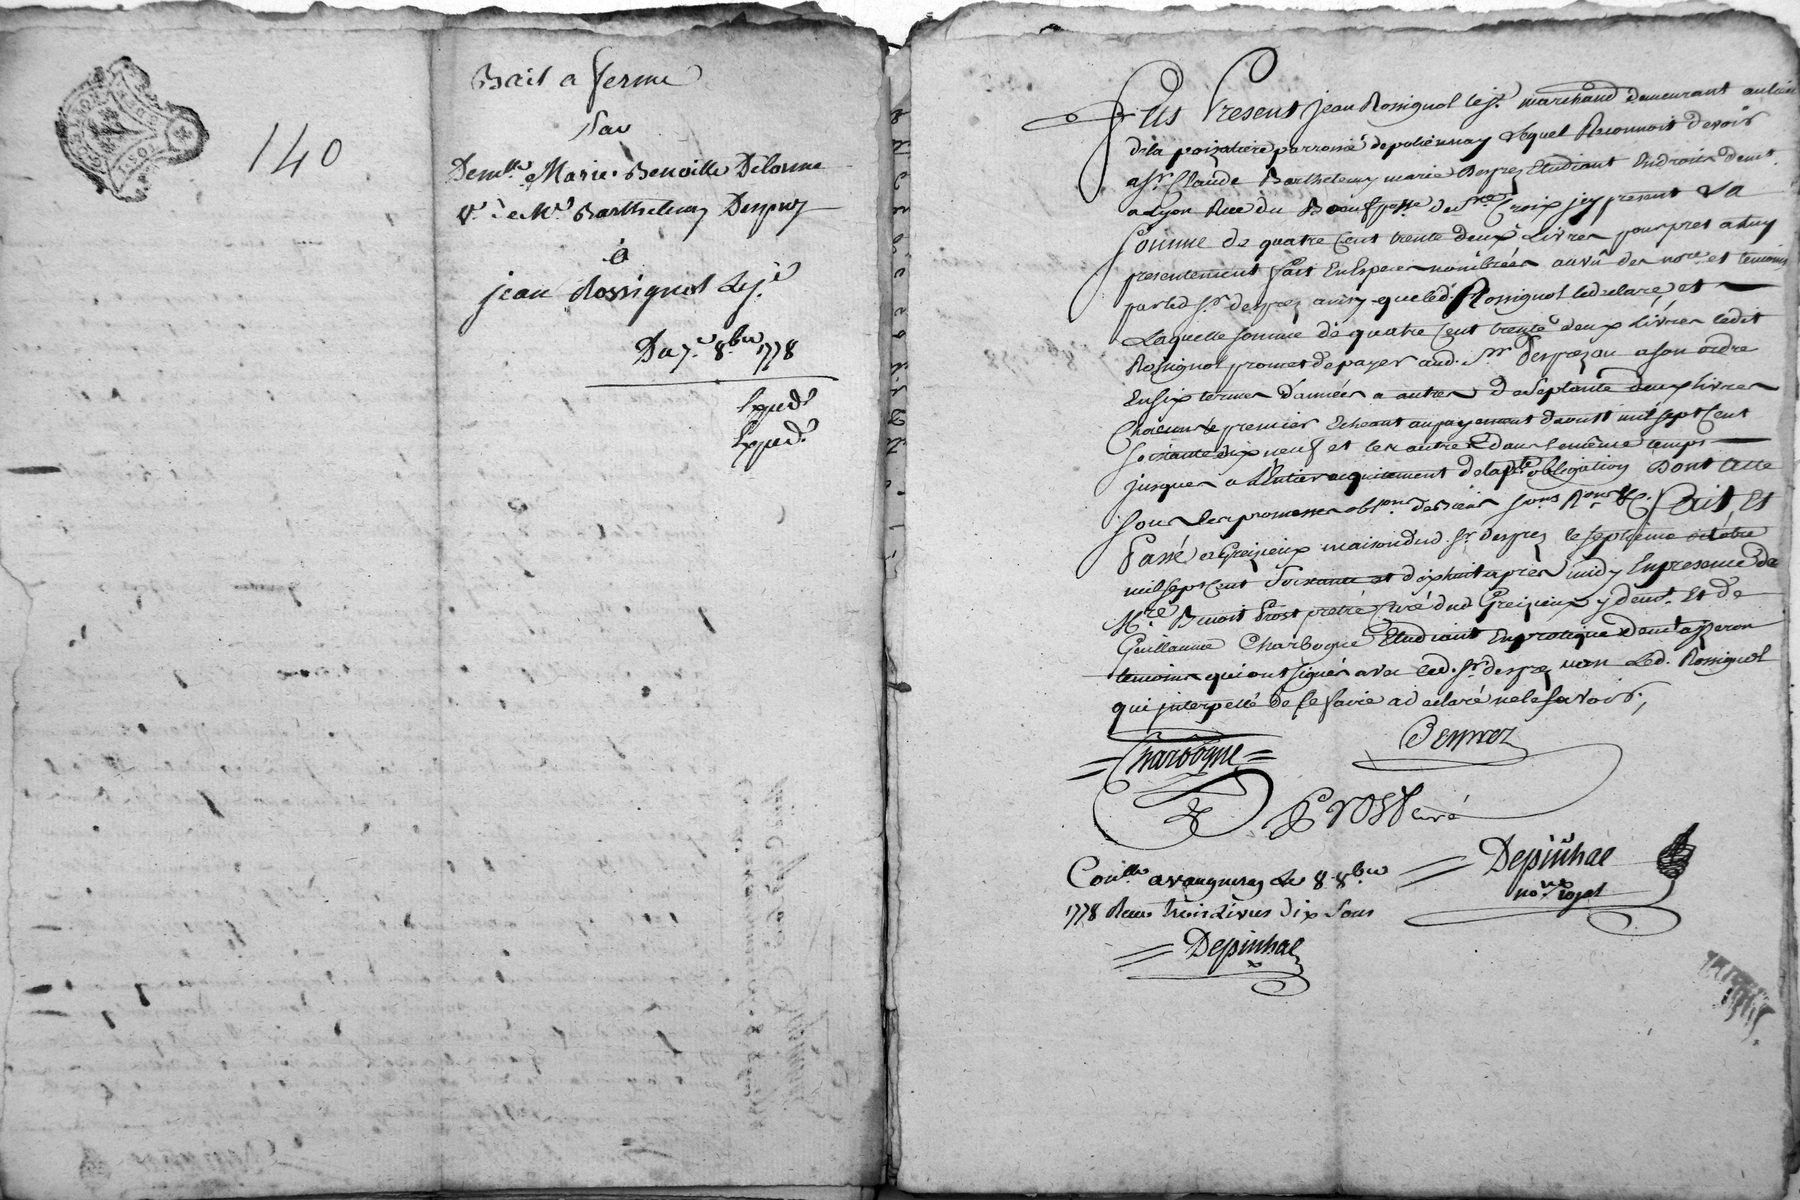 140
Bail a ferme
Par
Demlle Marie Benoitte Delorme
Ve de Mr Barthelemy Desprez
à
jean Rossignol Le je
Du 7e 8bre 1778
Expedé
Expedé
Fus Present jean Rossignol le je marchand demeurant au lieu
de la parroisse de polionnay Lequel Reconnoit devoir
a Sr Claude Barthelemy marie Desprez Etudiant En droits demt
a Lyon Rue du Boeuf psse de Ste Croix jcy present La
somme de quatre Cent trente deux Livres pour pret a luy
presentement fait En Especes nombrées au vû des nore et temoins
par led Sr desprez ainsy que led. Rossignol le declare, et
Laquelle somme de quatre Cent trente deux Livres ledit
Rossignol promet de payer aud. Sr Desprez ou a son ordre
En six termes d'années a autres de septante deux livres
Chacun le premier Echeant au payement d'aoust mil sept Cent
soixante dix neuf et les autres dans le même temps
jusques a l'Entier acquitement de la pte obligation Dont acte
sous les promesses obson Rons &c. Fait Et
Passé a Greizieux maison dud Sr desprez le septieme octobre
mil sept Cent soixante et dix huit après midy En presence de
Mre Benoit Prost pretre Curé dud Greizieux y demt. Et de
Guillaume Charbogne Etudiant En pratique demt a
temoins qui ont signés avec led. Sr desprez non Led. Rossignol
qui jnterpellé de le faire a declaré ne le savoir;
Charbogne
Desprez
Prost curé
Depinhac
nore royal
Conllé a vaugneray le 8 8bre
1778 Reçu trois Livres dix sous
Depinhac